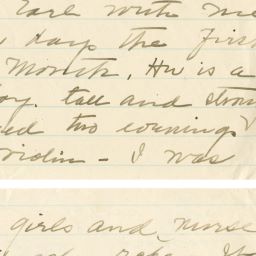 Earl with me
days the First
Month. He is a
boy. tall and stron
ed two evenings
violin - I was
girls and nurse